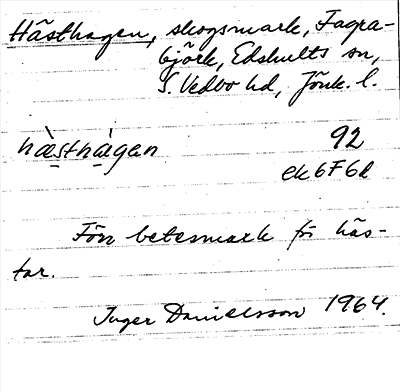 Hästhagen, skogsmark, Fagra-
björk, Edshults sn,
S. Vedbo hd, Jönk. l.
hæ̀sthàgen 92
ek 6F6d
Förr betesmark för häs-
tar.
Inger Danielsson 1964.